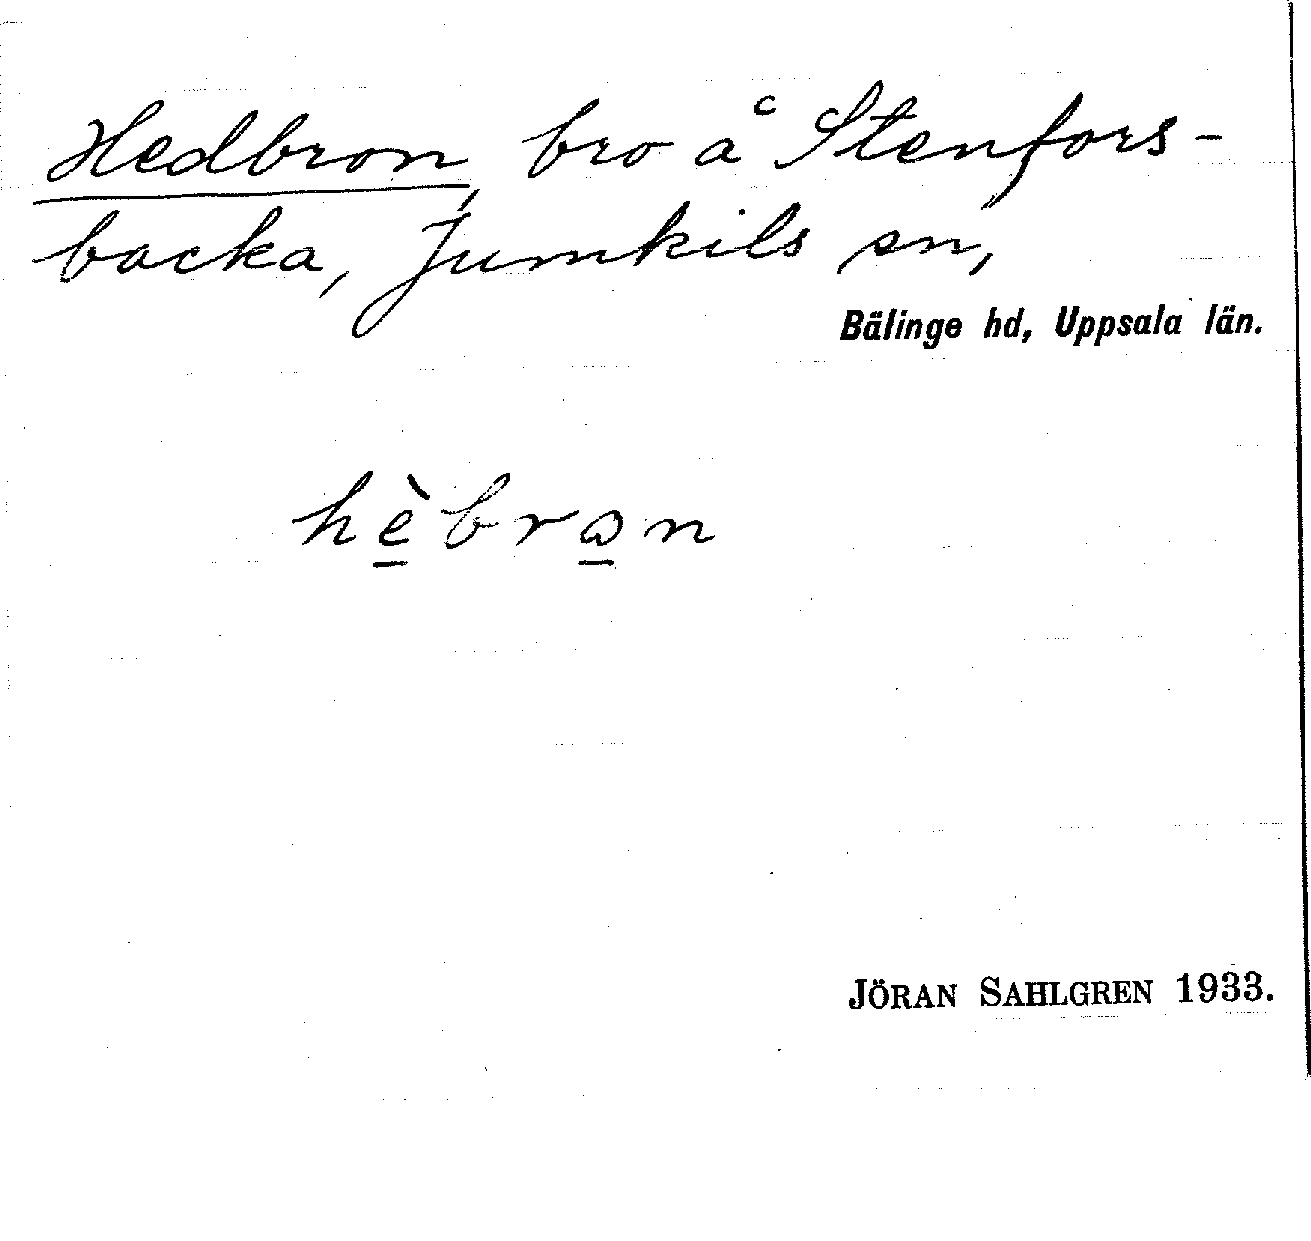 Hedbron, bro å Stenfors-
backa, Jumkils sn,
Bälinge hd, Uppsala län.
hè̱brω̱n
JÖRAN SAHLGREN 1933.